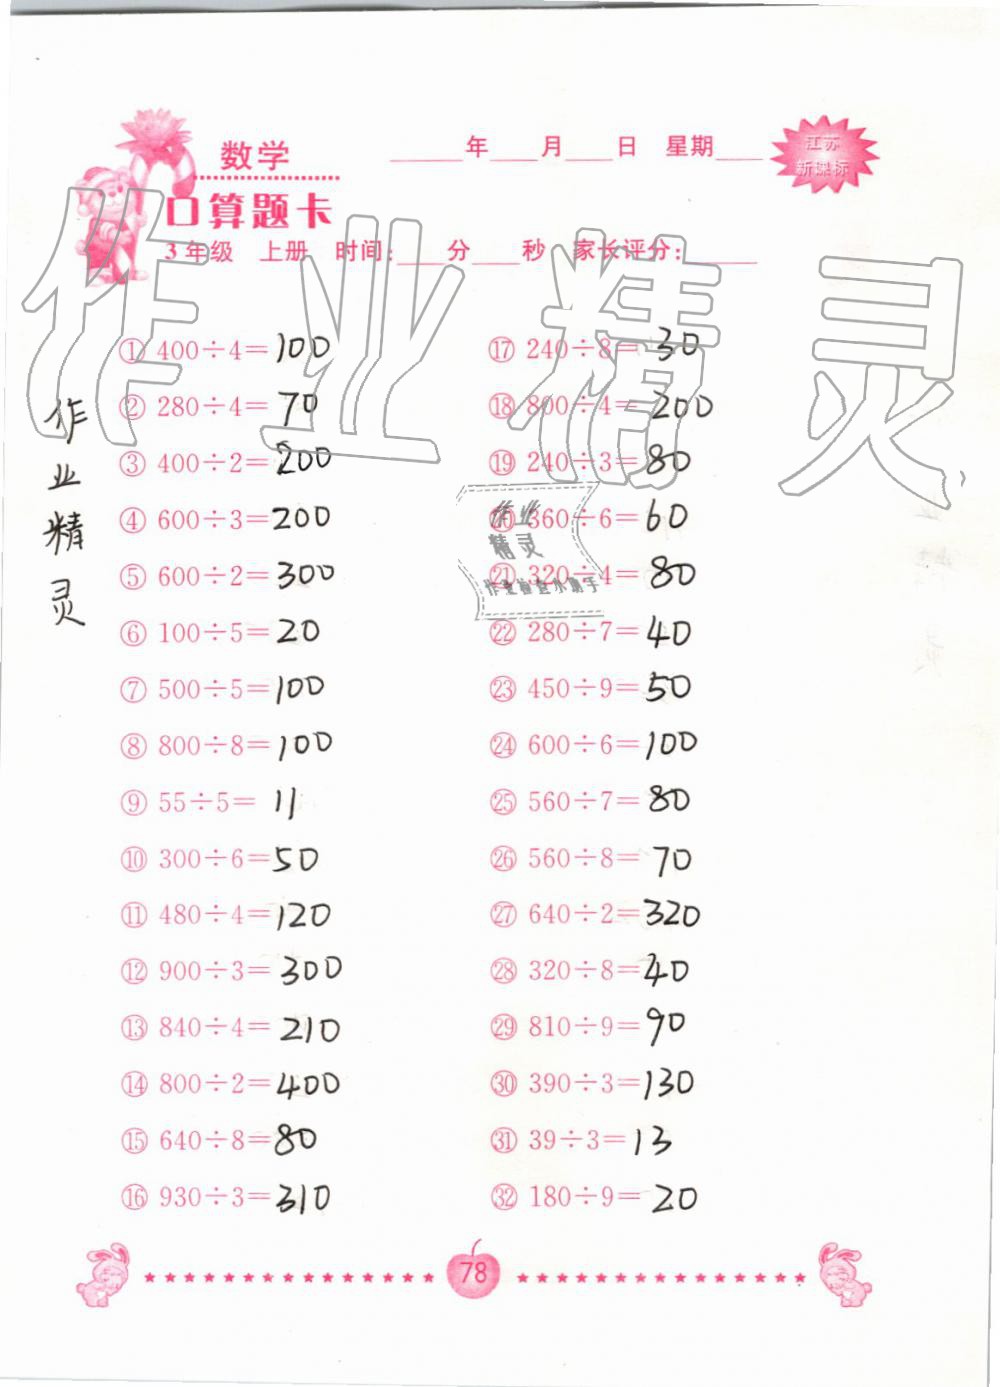 数学
____年___月___日 星期___
江苏
新课标
口算题卡
3年级 上册 时间:___分___秒 家长评分:_____
作业精灵
① 400÷4=100
② 280÷4=70
③ 400÷2=200
④ 600÷3=200
⑤ 600÷2=300
⑥ 100÷5=20
⑦ 500÷5=100
⑧ 800÷8=100
⑨ 55÷5=11
⑩ 300÷6=50
⑪ 480÷4=120
⑫ 900÷3=300
⑬ 840÷4=210
⑭ 800÷2=400
⑮ 640÷8=80
⑯ 930÷3=310
⑰ 240÷8=30
⑱ 800÷4=200
⑲ 240÷3=80
⑳ 360÷6=60
㉑ 320÷4=80
㉒ 280÷7=40
㉓ 450÷9=50
㉔ 600÷6=100
㉕ 560÷7=80
㉖ 560÷8=70
㉗ 640÷2=320
㉘ 320÷8=40
㉙ 810÷9=90
㉚ 390÷3=130
㉛ 39÷3=13
㉜ 180÷9=20
作
业
精
灵
作业
精灵
作业检查小助手
78